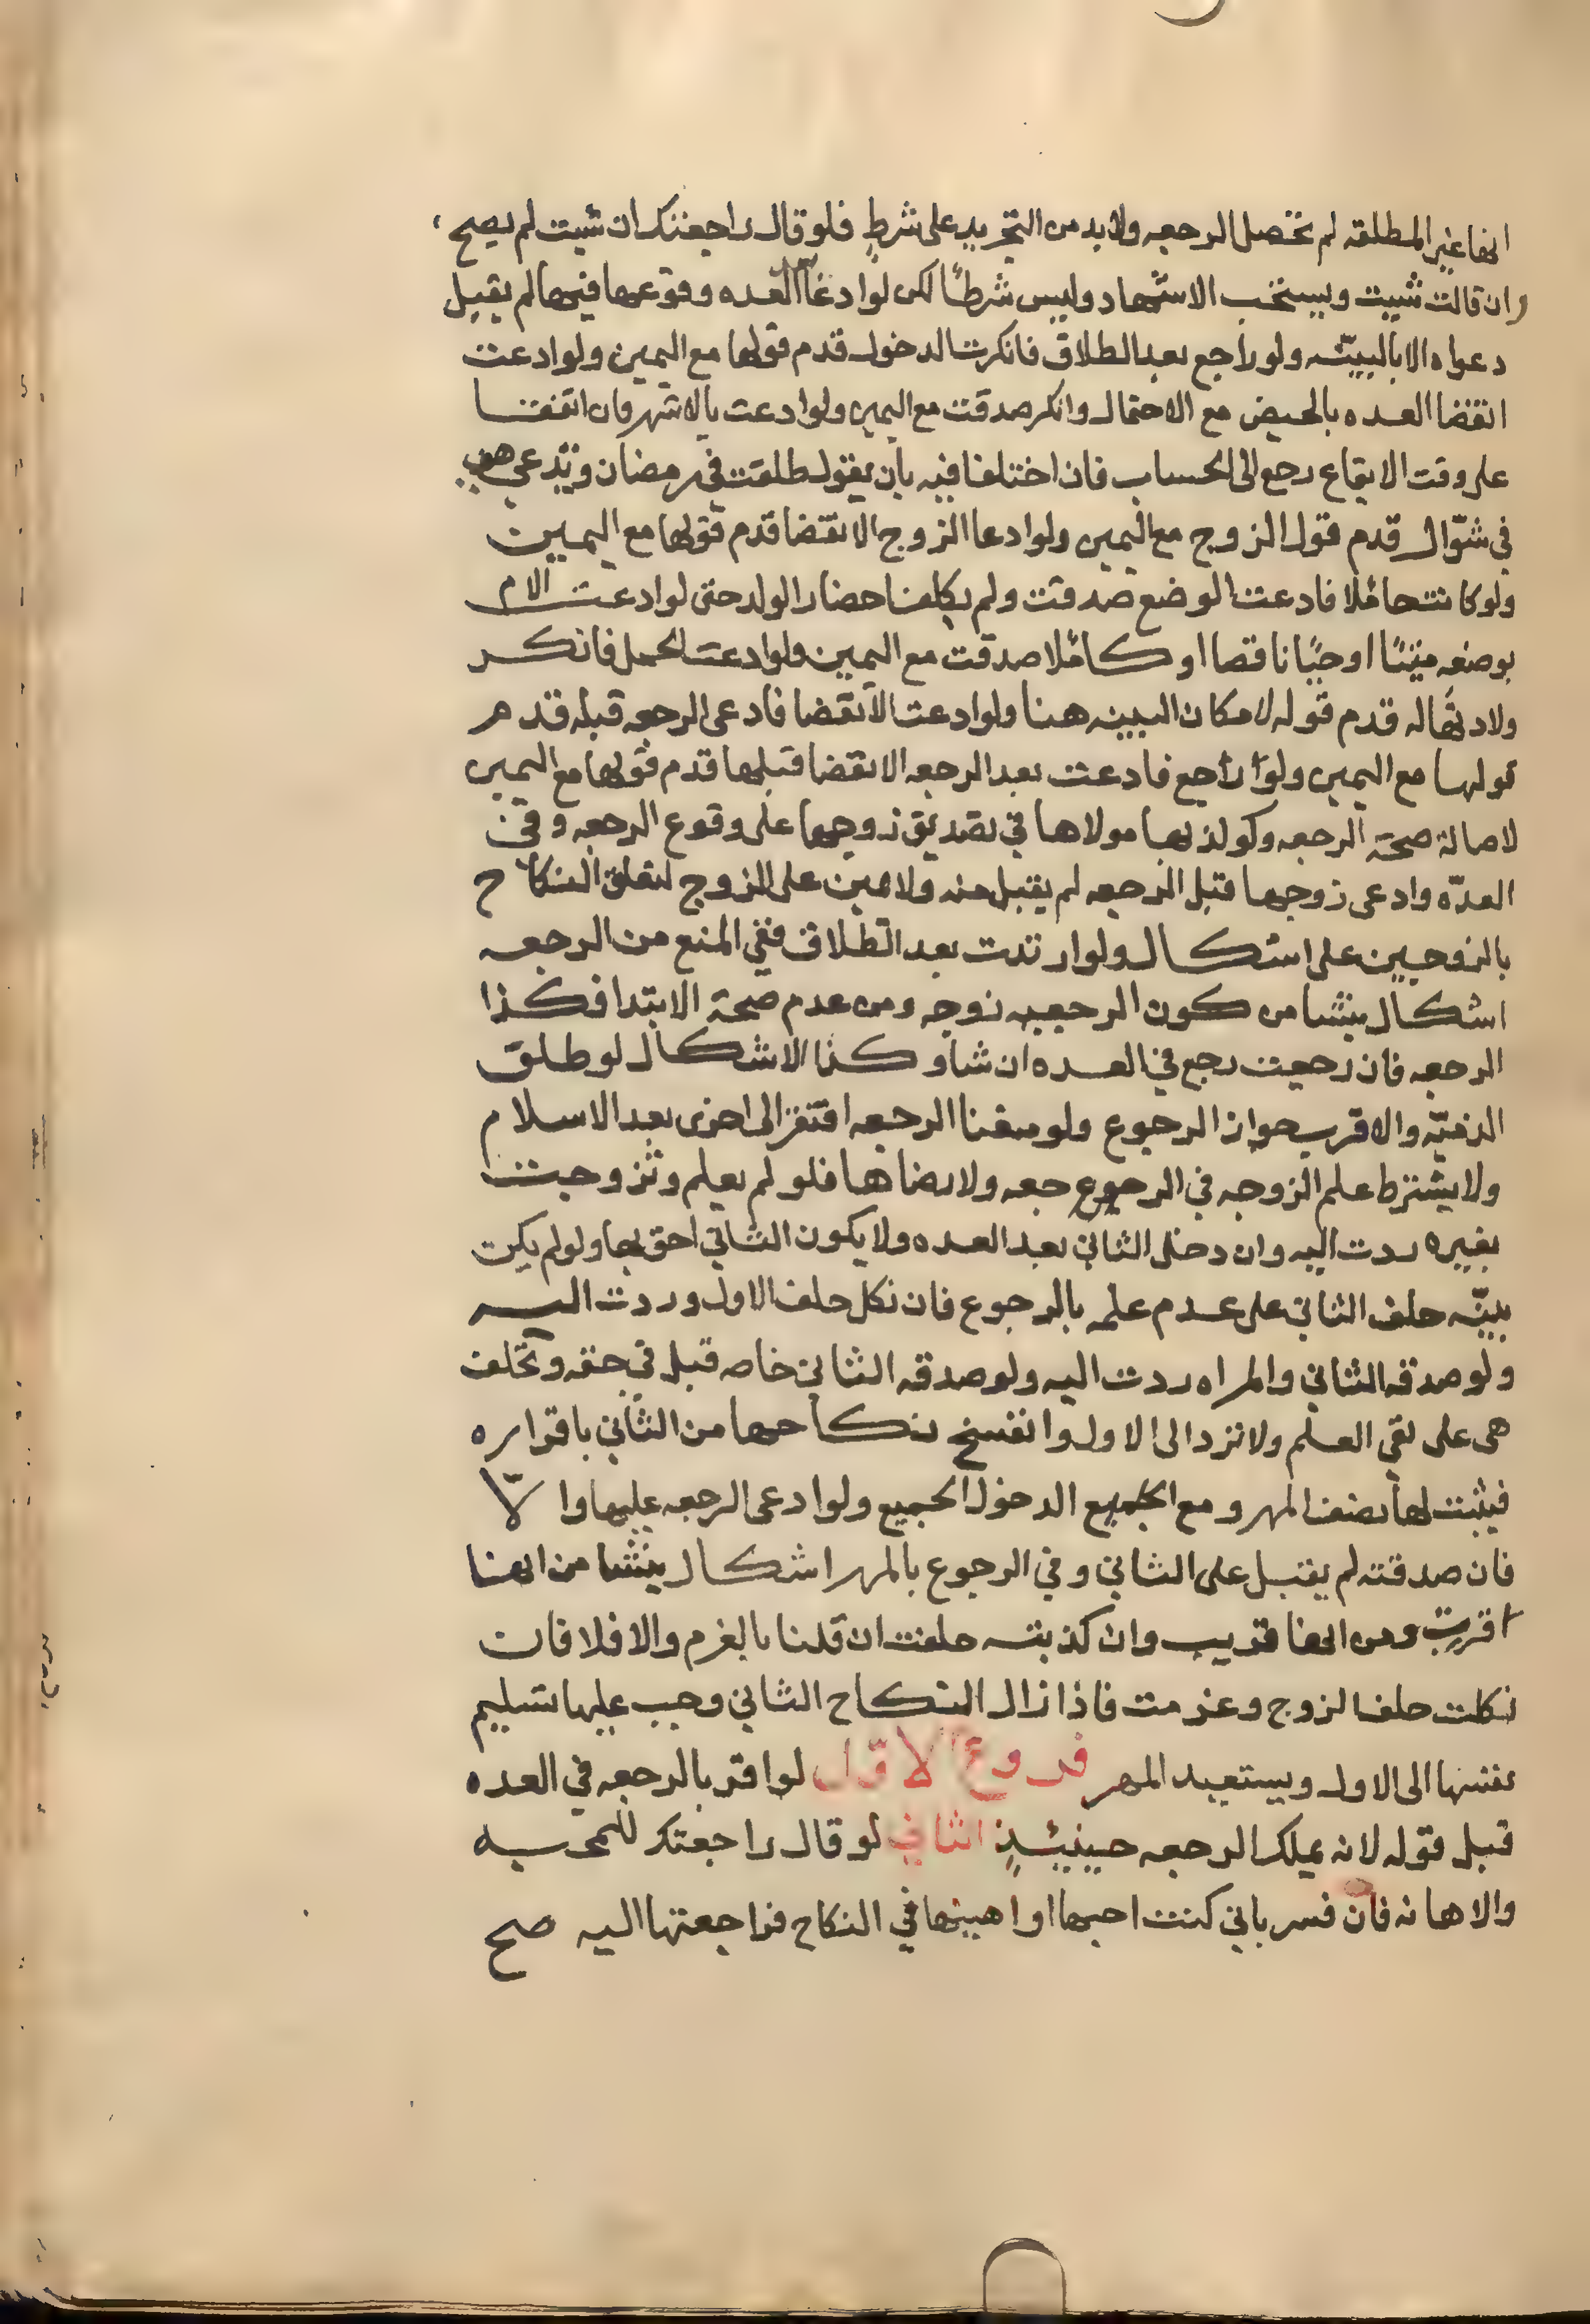 انها غير المطلقه لم تحصل الرجعه ولابد من التجريد على شرط فلو قال راجعتك ان شيت لم يصح
وان قالت شييت ويستحب الاشهاد وليس شرطا لكن لو ادعا بعد العده وقوعها فيها لم يقبل
دعواه الا بالبينه ولو راجع بعد الطلاق فانكرت الدخول قدم قولها مع اليمين ولو ادعت
انقضا العده بالحيض مع الاحتمال وانكر صدقت مع اليمين ولو ادعت بالاشهر فان اتفقتا
على وقت الايقاع رجع الى الحساب فان اختلفا فيه بان يقول طلقت في رمضان وتدعي هي
في شوّال قدم قول الزوج مع اليمين ولو ادعا الزوج الانقضا قدم قولها مع اليمين
ولو كانت حاملا فادعت الوضع صدقت ولم يكلف احضار الولد حتى لو ادعت الام
بوضعه ميتا او حيا ناقصا او كاملا صدقت مع اليمين ولو ادعت الحمل فانكر
ولادتها له قدم قوله لامكان البينه هنا ولو ادعت الانقضا فادعى الرجعه قبله قدم
قولها مع اليمين ولو راجع فادعت بعد الرجعه الانقضا قبلها قدم قولها مع اليمين
لاصالة صحة الرجعه وكو لذبها مولاها في تصديق زوجها على وقوع الرجعه وفي
العدّه وادعى زوجها قبل الرجعه لم يقبل منه ولا يمين على الزوج لتعلق النكاح
بالزوجين على اشكال ولو ارتدت بعد الطلاق ففي المنع من الرجعه
اشكال ينشا من كون الرجعيه زوجه ومن عدم صحة الابتدا فكذا
الرجعه فان رجعت رجع في العده ان شا وكذا الاشكال لو طلق
الذميّه والاقرب جواز الرجوع ولو منعنا الرجعه افتقر الى اخرى بعد الاسلام
ولا يشترط علم الزوجه في الرجوع جعه ولا رضاها فلو لم يعلم وتزوجت
بغيره ردت اليه وان دخل الثاني بعد العده ولا يكون الثاني احق بها ولو لم يكن
بينّه حلف الثاني على عدم علمه بالرجوع فان نكل حلف الاول وردت اليه
ولو صدقه الثاني والمراه ردت اليه ولو صدقه الثاني خاصه قبل في حقه وتحلف
هى على نفي العلم ولا ترد الى الاول وانفسخ نكاحها من الثاني باقراره
فيثبت لها نصف المهر ومع الجميع الدخول الجميع ولو ادعى الرجعه عليها اولّا
فان صدقته لم يقبل على الثاني وفي الرجوع بالمهر اشكال ينشا من انها
اقرت ومن انها قريب وان كذبته حلفت ان قلنا بالغرم والا فلا فان
نكلت حلف الزوج وغرمت فاذا زال النكاح الثاني وجب عليها تسليم
نفسها الى الاول ويستعيد المهر فروع الاوّل لو اقر بالرجعه في العده
قبل قوله لانه يملك الرجعه حينيئذٍ الثاني لو قال راجعتك للمحبه
والاهانه فان فسر باني كنت احبها او اهينها في النكاح فراجعتها اليه صح